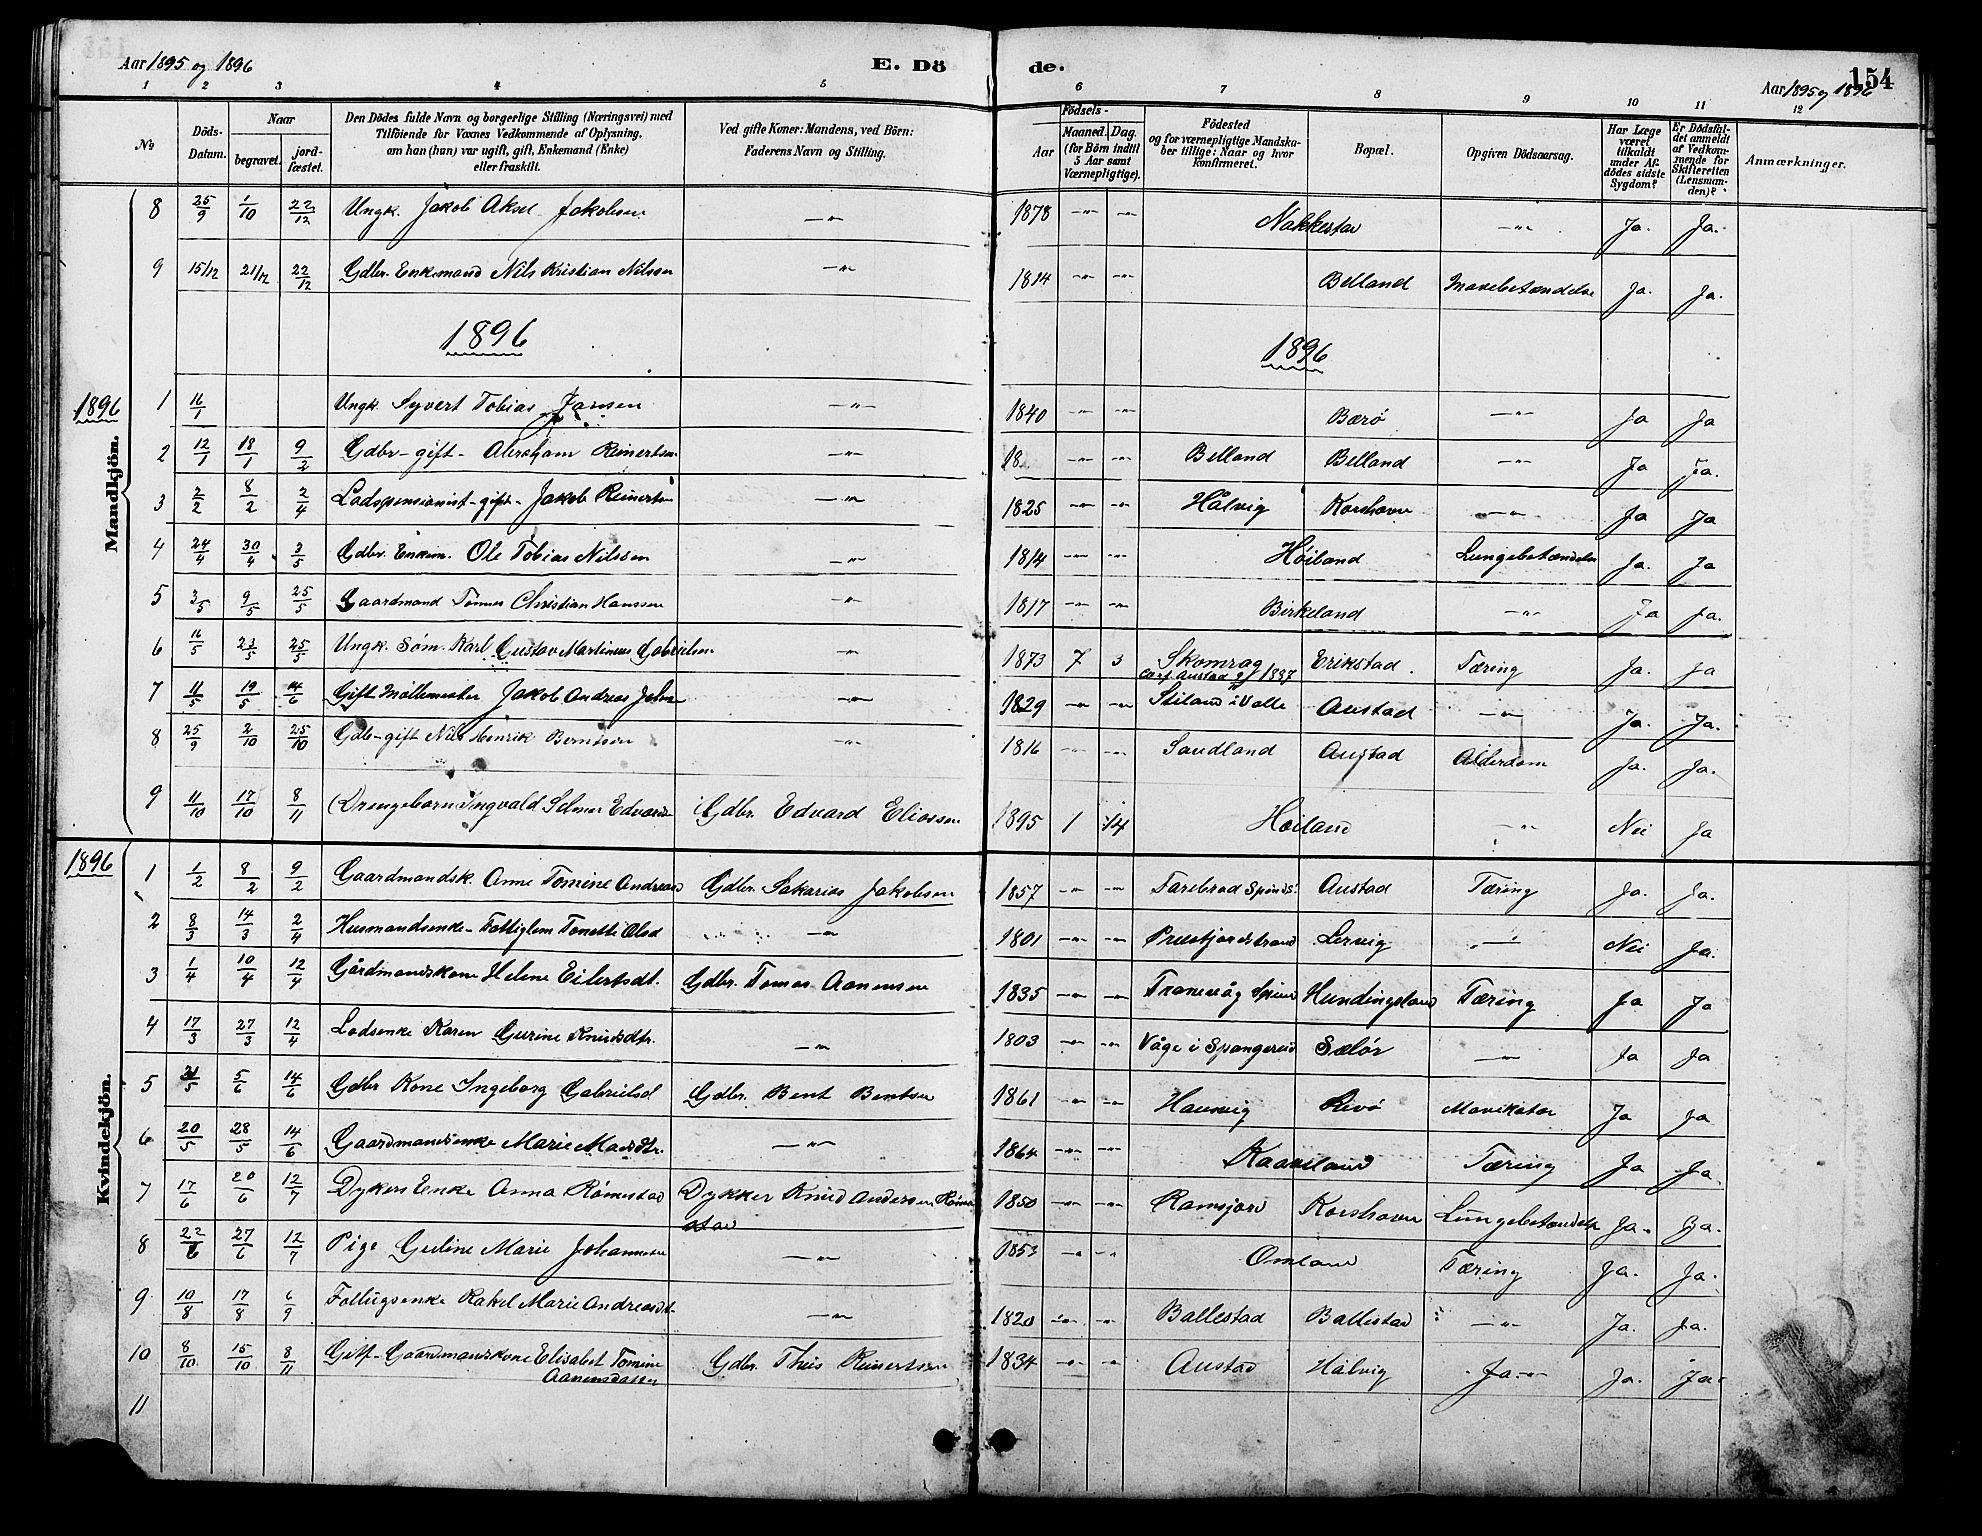 Aar 1895 og 1896
E. Dö
de.
Aar 1895 og 1896
154
1 2 3 4 5 6 7 8 9 10 11 12
No
Döds-Datum.
Naar
begravet.
jord-fæstet.
Den Dödes fulde Navn og borgerlige Stilling (Næringsvei) med
Tilföiende for Voxnes Vedkommende af Oplysning,
om han (hun) var ugift, gift, Enkemand (Enke)
eller fraskilt.
Ved gifte Koner: Mandens, ved Börn:
Faderens Navn og Stilling.
Födsels-
Aar
Maaned. Dag.
(for Börn indtil
5 Aar samt
Værnepligtige).
Födested
og for værnepligtige Mandska-
ber tillige: Naar og hvor
konfirmeret.
Bopæl.
Opgiven Dödsaarsag.
Har Læge
været
tilkaldt
under Af-
dödes sidste
Sygdom?
Er Dödsfal-
det anmeldt
af Vedkom-
mende for
Skifteretten
(Lensman-
den)?
Anmærkninger.
8 25/9 1/10 22/12 Ungk. Jakob Aksel Jakobsen —"— 1878 —"— —"— Nakkestad —"— Ja. Ja.
9 15/12 21/12 22/12 Gdbr. Enkemand Nils Kristian Nilsen —"— 1814 —"— —"— Belland Mavebetændelse Ja. Ja.
1896
1896
1896
Mandkjön.
1 16/1 Ungk. Syvert Tobias Jansen —"— 1840 —"— —"— Bærø —"— Ja Ja
2 12/1 18/1 9/2 Gdbr - gift - Abraham Reinertsen —"— 18 —"— —"— Belland Belland —"— Ja Ja.
3 2/2 8/2 2/4 Lodspensionist - gift - Jakob Reinertsen —"— 1825 —"— —"— Hålvig Korshavn —"— Ja Ja
4 24/4 30/4 3/5 Gdbr. Enkem. Ole Tobias Nilssen —"— 1814 —"— —"— Höiland Lungebetændelse Ja. Ja
5 3/5 9/5 25/5 Gaardmand Tönnes Christian Hanssen —"— 1817 —"— —"— Birkeland —"— Ja Ja.
6 16/5 23/5 25/5 Ungk. Söm. Karl Gustav Martinius Gabrielsen —"— 1873 7 3 Skomrag Erikstad. Tæring Ja. Ja
7 11/5 19/5 14/6 Gift Möllemester Jakob Andreas —"— 1829 —"— —"— Stiland i Valle Austad —"— Ja. Ja.
8 25/9 2/10 25/10 Gdb - gift Nils Henrik Berntsen —"— 1816 —"— —"— Sandland Austad Alderdom Ja. Ja.
9 11/10 17/10 8/11 Drengebarn Ingvald Selmer Gdbr. Edvard Eliassen 1895 1 14 Höiland —"— Nei Ja
1896
Kvindekjön.
1 1/2 8/2 9/2 Gaardmandsk. Anne Tomine Andreasd Gdbr. Sakarias Jakobsen 1857 —"— —"— Farebrad Spinds. Austad Tæring Ja. Ja.
2 8/3 14/3 2/4 Husmandsenke - Fattiglem Tonette Olsd —"— 1801 —"— —"— Lervig —"— Nei Ja.
3 1/4 10/4 12/4 Gårdmandskone Helene Eilertsdt. Gdbr. Tomas Aanensen 1835 —"— —"— Tranevåg Hundingsland Tæring Ja Ja
4 17/3 27/3 12/4 Lodsenke Karen Gurine Knudsdtr. —"— 1803 —"— —"— Våge i Spangereid Sælör —"— Ja Ja
5 5/6 14/6 Gdbr Kone Ingeborg Gabrielsd Gdbr. Bent Bentsen 1861 —"— —"— Hausvig Revø Mavekatar Ja Ja
6 20/5 28/5 14/6 Gaardmandsenke Marie Madsdtr. —"— 1864 —"— —"— Kaaveland Tæring Ja Ja.
7 17/6 20/6 12/7 Dykers Enke Anna Römestad Dykker Knud Andersen Röme
stad 1850 —"— —"— Ramsjord Korshavn Lungebetændelse Ja. Ja.
8 22/6 27/6 12/7 Pige Guline Marie —"— 1853 —"— —"— Omland Tæring Ja. Ja.
9 10/8 17/8 6/9 Rakel Marie Andreasdt —"— 1820 —"— —"— Ballestad Ballestad —"— Ja. Ja.
10 8/10 15/10 8/11 Gift - Gaardmandskone Elisabet Tomine
Aanensdatter Gdbr. Thiis Reinertsen 1834 —"— —"— Austad Hålvig Ja. —"— Ja. Ja.
11